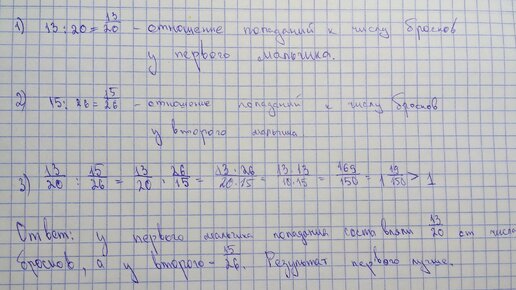 1) 13 : 20 = 13/20 - отношение попаданий к числу бросков
у первого мальчика.
2) 15 : 26 = 15/26 - отношение попаданий к числу бросков
у второго мальчика
3) 13/20 : 15/26 = 13/20 · 26/15 = 13·26/20·15 = 13·13/10·15 = 169/150 = 1 19/150 > 1
Ответ: у первого мальчика попадания составляли 13/20 от числа
бросков, а у второго - 15/26. Результат первого лучше.